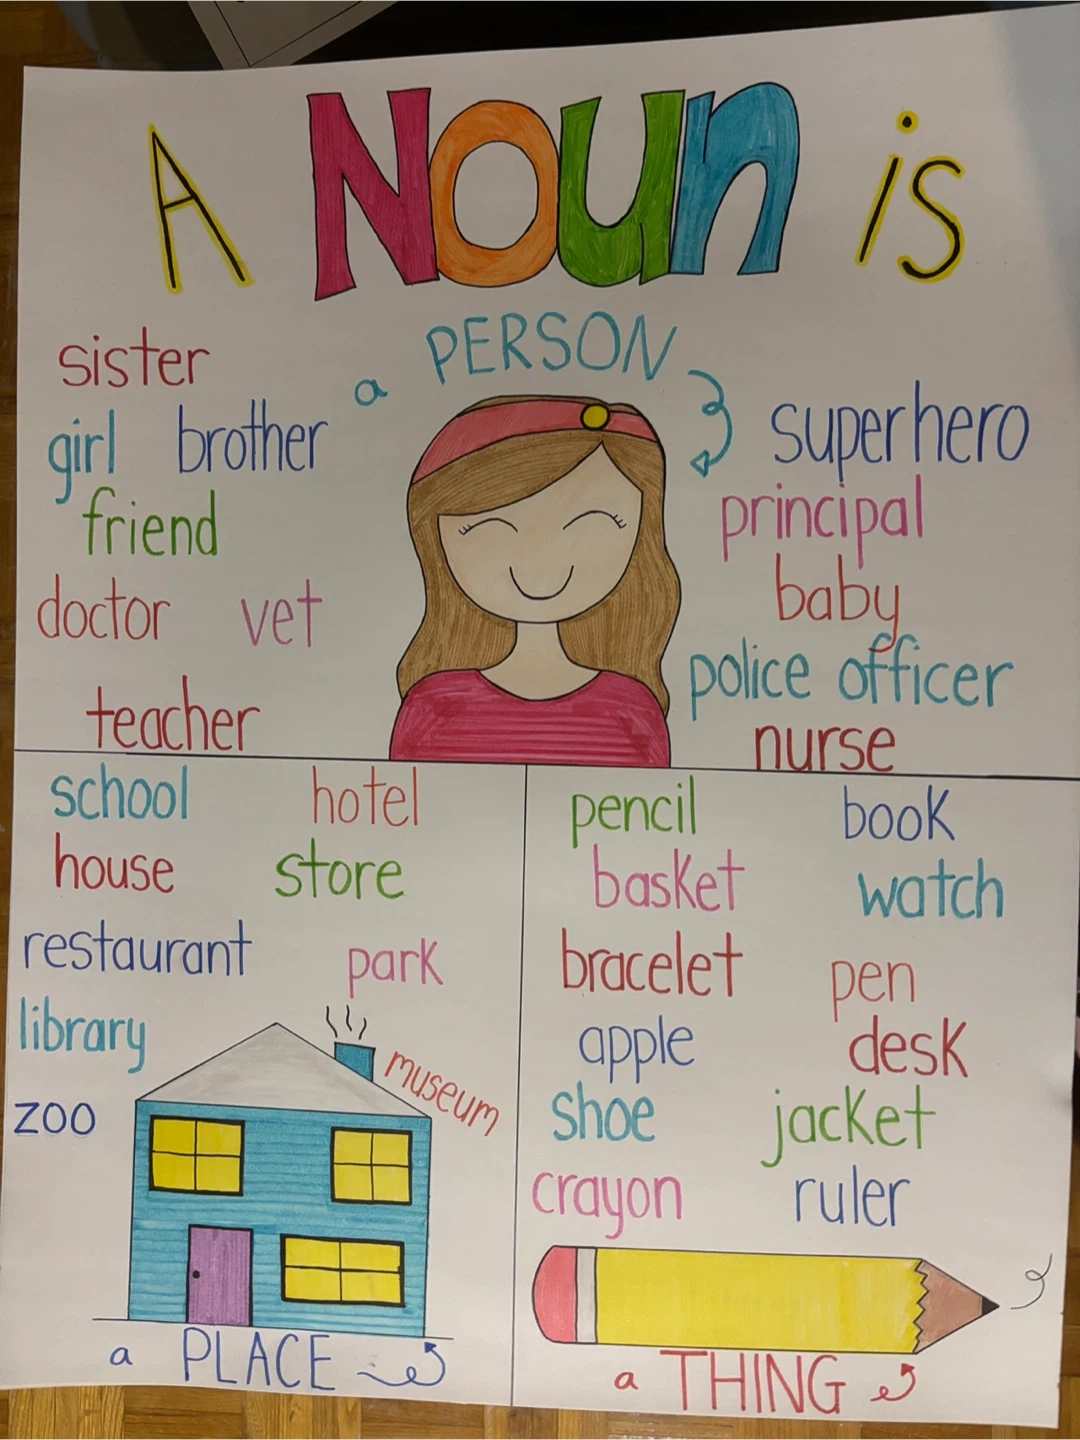 A Noun is
a PERSON
sister
girl brother
friend
doctor vet
teacher
superhero
principal
baby
police officer
nurse
school hotel
house store
restaurant park
library
museum
zoo
a PLACE
pencil book
basket watch
bracelet pen
apple desk
shoe jacket
crayon ruler
a THING